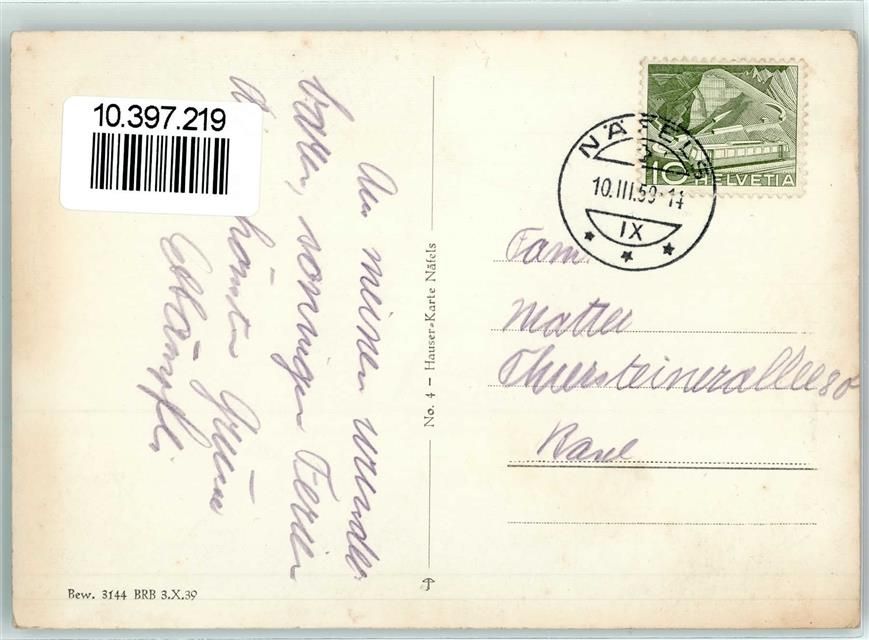 10.397.219
Aus meinen wunder
baren, sonnigen Ferien
die schönsten Grüsse
NÄFELS
10.III.59-14
IX
10 HELVETIA
Fam.
Matter
Thiersteinerallee 80
Basel
No. 4 – Hauser-Karte Näfels
Bew. 3144 BRB 3.X.39